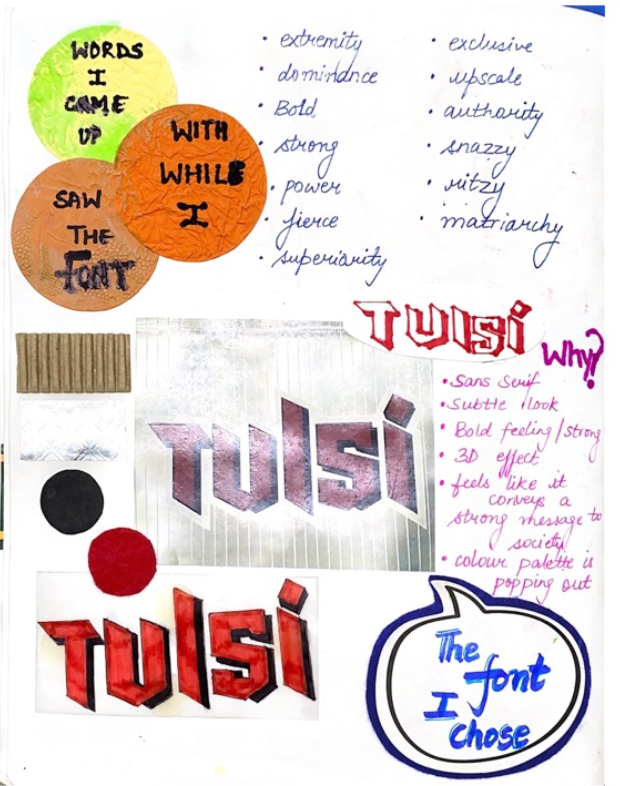 WORDS
I
CAME
UP
WITH
WHILE
I
SAW
THE
FONT
• extremity
• dominance
• Bold
• strong
• power
• fierce
• superiority
• exclusive
• upscale
• authority
• snazzy
• ritzy
• matriarchy
TUlSi
Why?
• Sans Serif
• Subtle look
• Bold feeling/strong
• 3D effect
• feels like it
conveys a
strong message to
society
• colour palette is
popping out
TUlSi
TUlSi
The
font
I
chose